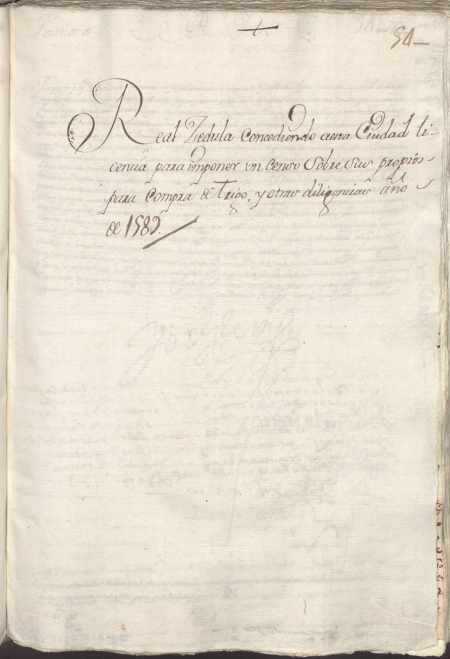 54
Real Zedula Concediendo a esta Ciudad li-
cencia para imponer vn Censo Sobre sus propios
para Compra de Trigo, y otras diligencias año
de 1589.